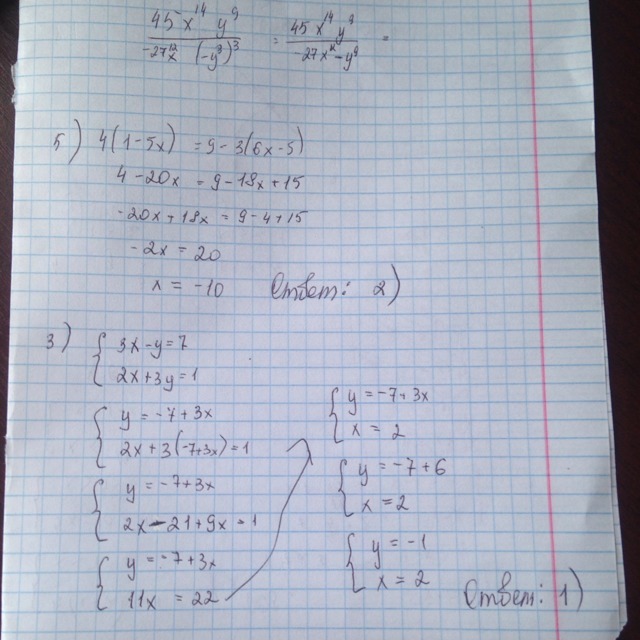 45 x¹⁴ y⁹ / -27x¹² (-y³)³ = 45 x¹⁴ y⁹ / -27x¹² -y⁹ =
5) 4(1-5x) = 9-3(6x-5)
4-20x = 9-18x+15
-20x+18x = 9-4+15
-2x = 20
x = -10 Ответ: 2)
3) { 3x-y=7
2x+3y=1
{ y = -7+3x
2x+3(-7+3x)=1
{ y = -7+3x
2x-21+9x=1
{ y = -7+3x
11x = 22
{ y = -7+3x
x = 2
{ y = -7+6
x = 2
{ y = -1
x = 2
Ответ: 1)